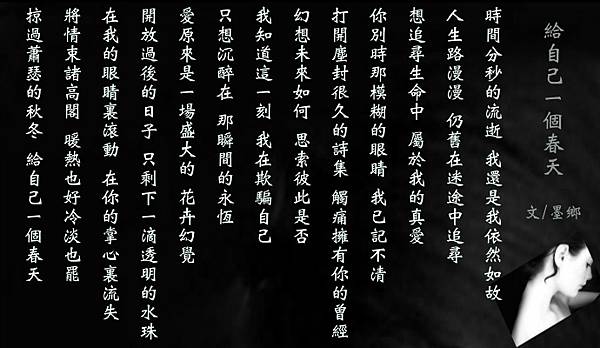 給自己一個春天
文/墨鄉
時間分秒的流逝 我還是我依然如故
人生路漫漫 仍舊在迷途中追尋
想追尋生命中 屬於我的真愛
你別時那模糊的眼睛 我已記不清
打開塵封很久的詩集 觸痛擁有你的曾經
幻想未來如何 思索彼此是否
我知道這一刻 我在欺騙自己
只想沉醉在 那瞬間的永恆
愛原來是一場盛大的 花卉幻覺
開放過後的日子 只剩下一滴透明的水珠
在我的眼睛裏滾動 在你的掌心裏流失
將情束諸高閣 暖熱也好冷淡也罷
掠過蕭瑟的秋冬 給自己一個春天